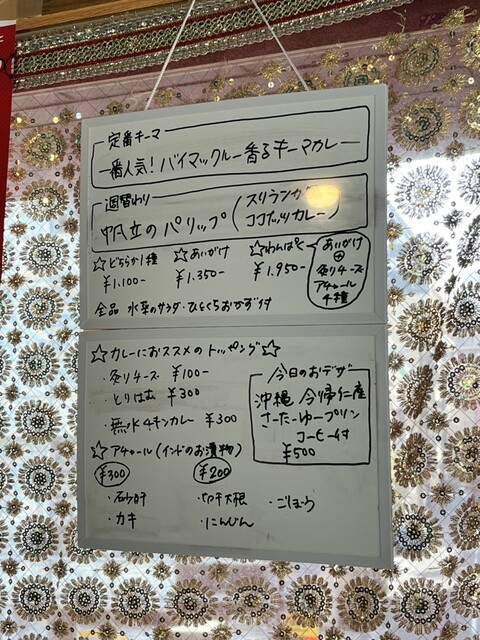 定番キーマ
一番人気！バイマックルー香るキーマカレー
週替わり
帆立のパリップ（スリランカ
ココナッツカレー）
☆どちらか1種 ☆あいがけ ☆わんぱく
¥1.100- ¥1.350- ¥1.950-
あいがけ
⊕
炙りチーズ
アチャール
4種
全品 水菜のサラダ・ひとくちおかず付
☆カレーにおススメのトッピング☆
・炙りチーズ ¥100-
・とりはむ ¥300
・無水チキンカレー ¥300
今日のおデザ
沖縄 今帰仁産
さーたーゆープリン
コーヒー付
¥500
☆アチャール（インドのお漬物）
¥300 ¥200
・砂肝 ・切干大根 ・ごぼう
・カキ ・にんじん